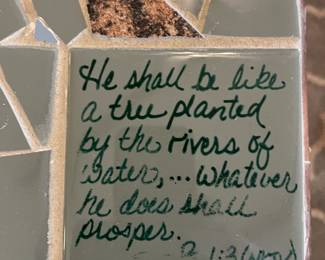 He shall be like
a tree planted
by the rivers of
Water,... whatever
he does shall
prosper.
1:3